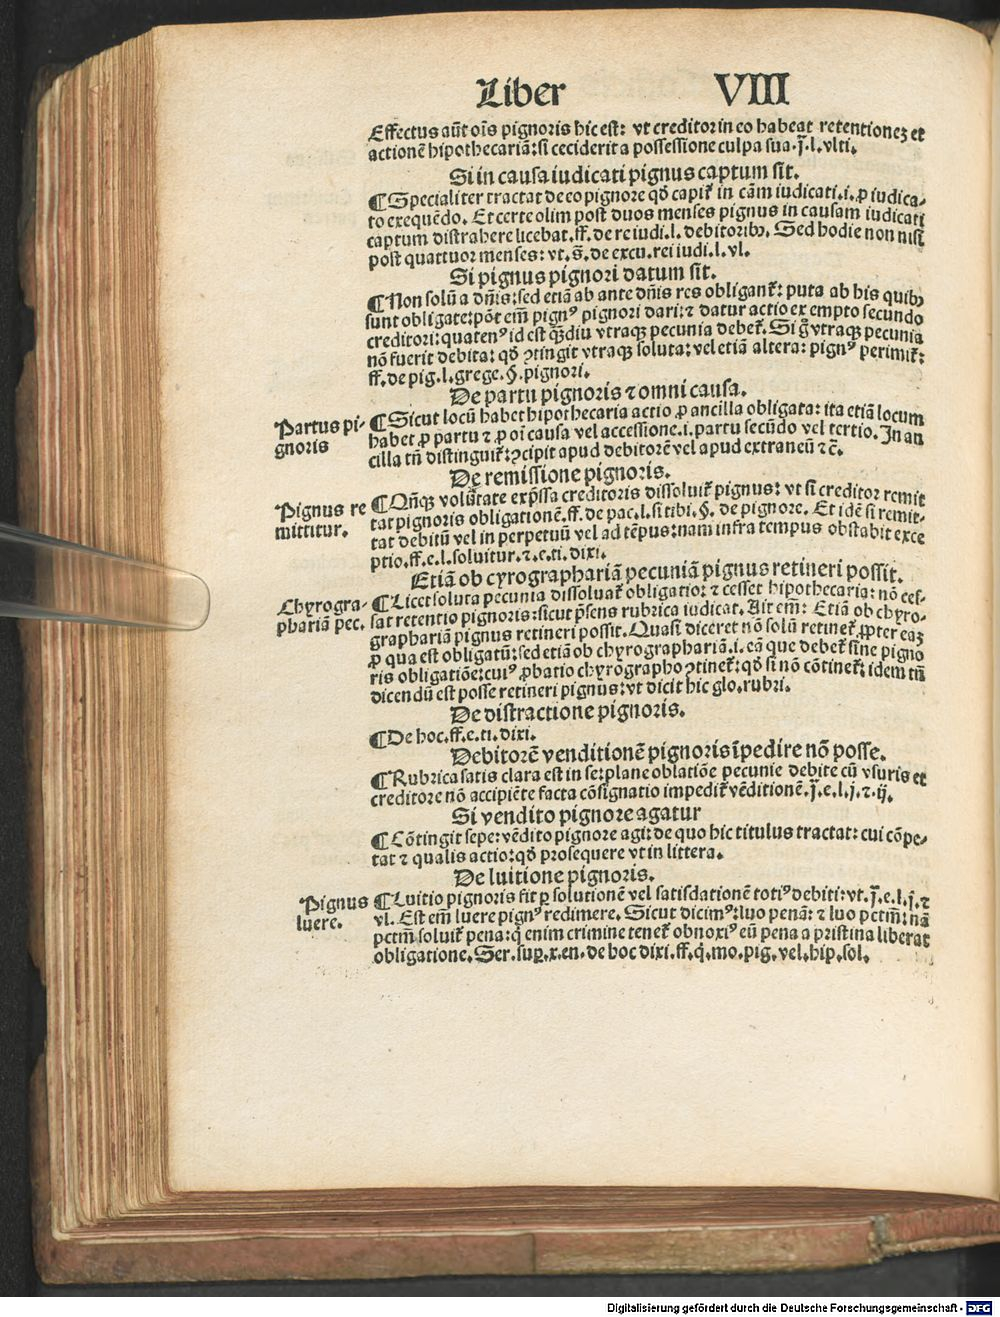 Liber VIII
Effectus aūt oīs pignoris hic est: vt creditor in eo habeat retentionez et
actionē hipothecariā: si ceciderit a possessione culpa sua. j̄. l. vlti.
Si in causa iudicati pignus captum sit.
¶ Specialiter tractat de eo pignore qḋ capit᷑ in cām iudicati. i. ꝓ iudica-
to exequēdo. Et certe olim post duos menses pignus in causam iudicati
captum distrahere licebat. ff. de re iudi. l. debitoribꝫ. Sed hodie non nisi
post quattuor menses: vt. s̄. de excu. rei iudi. l. vl.
Si pignus pignori datum sit.
¶ Non solū a dn̄is: sed etiā ab ante dn̄is res obligant᷑: puta ab his quibꝫ
sunt obligate: pōt em̄ pignꝰ pignori dari: ⁊ datur actio ex empto secundo
creditori: quatenꝰ id est qꝫdiu vtraqꝫ pecunia debet᷑. Si g̊ vtraqꝫ pecunia
nō fuerit debita: qḋ ꝯtingit vtraqꝫ soluta: vel etiā altera: pignꝰ perimit᷑:
ff. de pig. l. grege. §. pignori.
De partu pignoris ⁊ omni causa.
Partus pi-
gnoris
¶ Sicut locū habet hipothecaria actio ꝓ ancilla obligata: ita etiā locum
habet ꝓ partu ⁊ ꝓ oī causa vel accessione. i. partu secūdo vel tertio. In an
cilla tn̄ distinguit᷑: ꝯcipit apud debitorē vel apud extraneū ⁊ c̄.
De remissione pignoris.
Pignus re
mittitur.
¶ Qn̄qꝫ volūtate exp̄ssa creditoris dissoluit᷑ pignus: vt si creditor remit
tat pignoris obligationē. ff. de pac. l. si tibi. §. de pignore. Et idē si remit-
tat debitū vel in perpetuū vel ad tēpus: nam infra tempus obstabit exce
ptio. ff. e. l. soluitur. ⁊. e. ti. dixi.
Etiā ob cyrographariā pecuniā pignus retineri possit.
Chyrogra-
phariā pec.
¶ Licet soluta pecunia dissoluat᷑ obligatio: ⁊ cesset hipothecaria: nō ces-
sat retentio pignoris: sicut p̄sens rubrica iudicat. Ait em̄: Etiā ob chyro-
grapharıam pignus retineri possit. Quasi diceret nō solū retinet᷑ ꝓpter eaz
ꝓ qua est obligatū: sed etiā ob chyrographariā. i. eā que debet᷑ sine pigno
ris obligatiōe: cuiꝰ ꝓbatio chyrographo ꝯtinet᷑: qḋ si nō cōtinet᷑: idem tn̄
dicendū est posse retineri pignus: vt dicit hic glo. rubri.
De distractione pignoris.
¶ De hoc. ff. e. ti. dixi.
Debitorē venditionē pignoris īpedire nō posse.
¶ Rubrica satis clara est in se: plane oblatiōe pecunie debite cū vsuris et
creditore nō accipiēte facta cōsignatio impedit᷑ vēditionē. j̄. e. l. j. ⁊. ij.
Si vendito pignore agatur
¶ Cōtingit sepe: vēdito pignore agi: de quo hic titulus tractat: cui cōpe-
tat ⁊ qualis actio: qḋ prosequere vt in littera.
De luitione pignoris.
Pignus
luere.
¶ Luitio pignoris fit ꝑ solutionē vel satisdationē totiꝰ debiti: vt. j̄. e. l. j. ⁊
vl. Est em̄ luere pignꝰ redimere. Sicut dicimꝰ: luo penā: ⁊ luo pctm̄: nā
pctm̄ soluit᷑ pena: q̇ enim crimine tenet᷑ obnoxiꝰ eū pena a pristina liberat
obligatione. Ser. suꝑ. x. en. de hoc dixi. ff. q̇. mo. pig. vel. hip. sol.
Digitalisierung gefördert durch die Deutsche Forschungsgemeinschaft - DFG